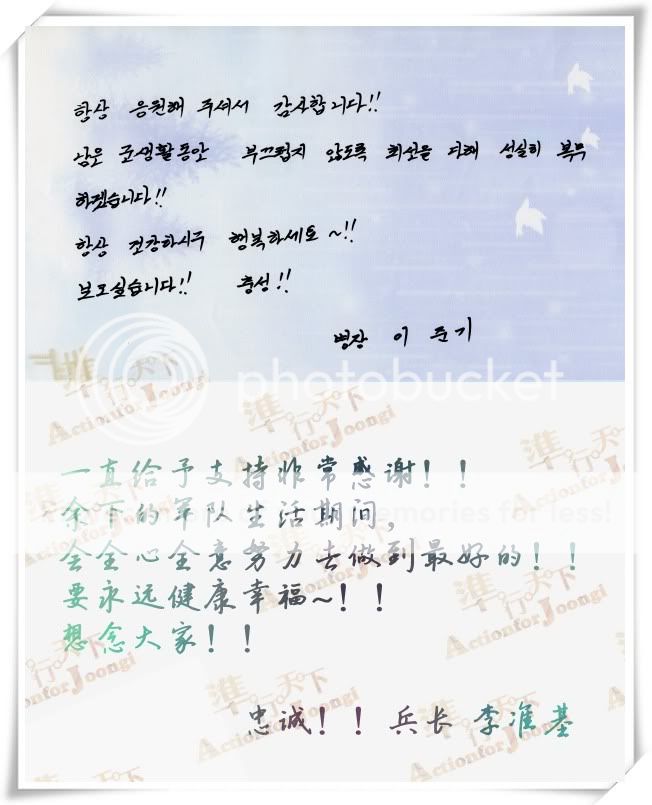 항상 응원해 주셔서 감사합니다!!
남은 군생활동안 부끄럽지 않도록 최선을 다해 성실히 복무
하겠습니다!!
항상 건강하시구 행복하세요~!!
보고싶습니다!! 충성!!
병장 이준기
photobucket
一直给予支持非常感谢！！
余下的军队生活期间，
memories for less!
会全心全意努力去做到最好的！！
要永远健康幸福~！！
想念大家！！
忠诚！！兵长 李准基
準行天下
ActionforJoongi